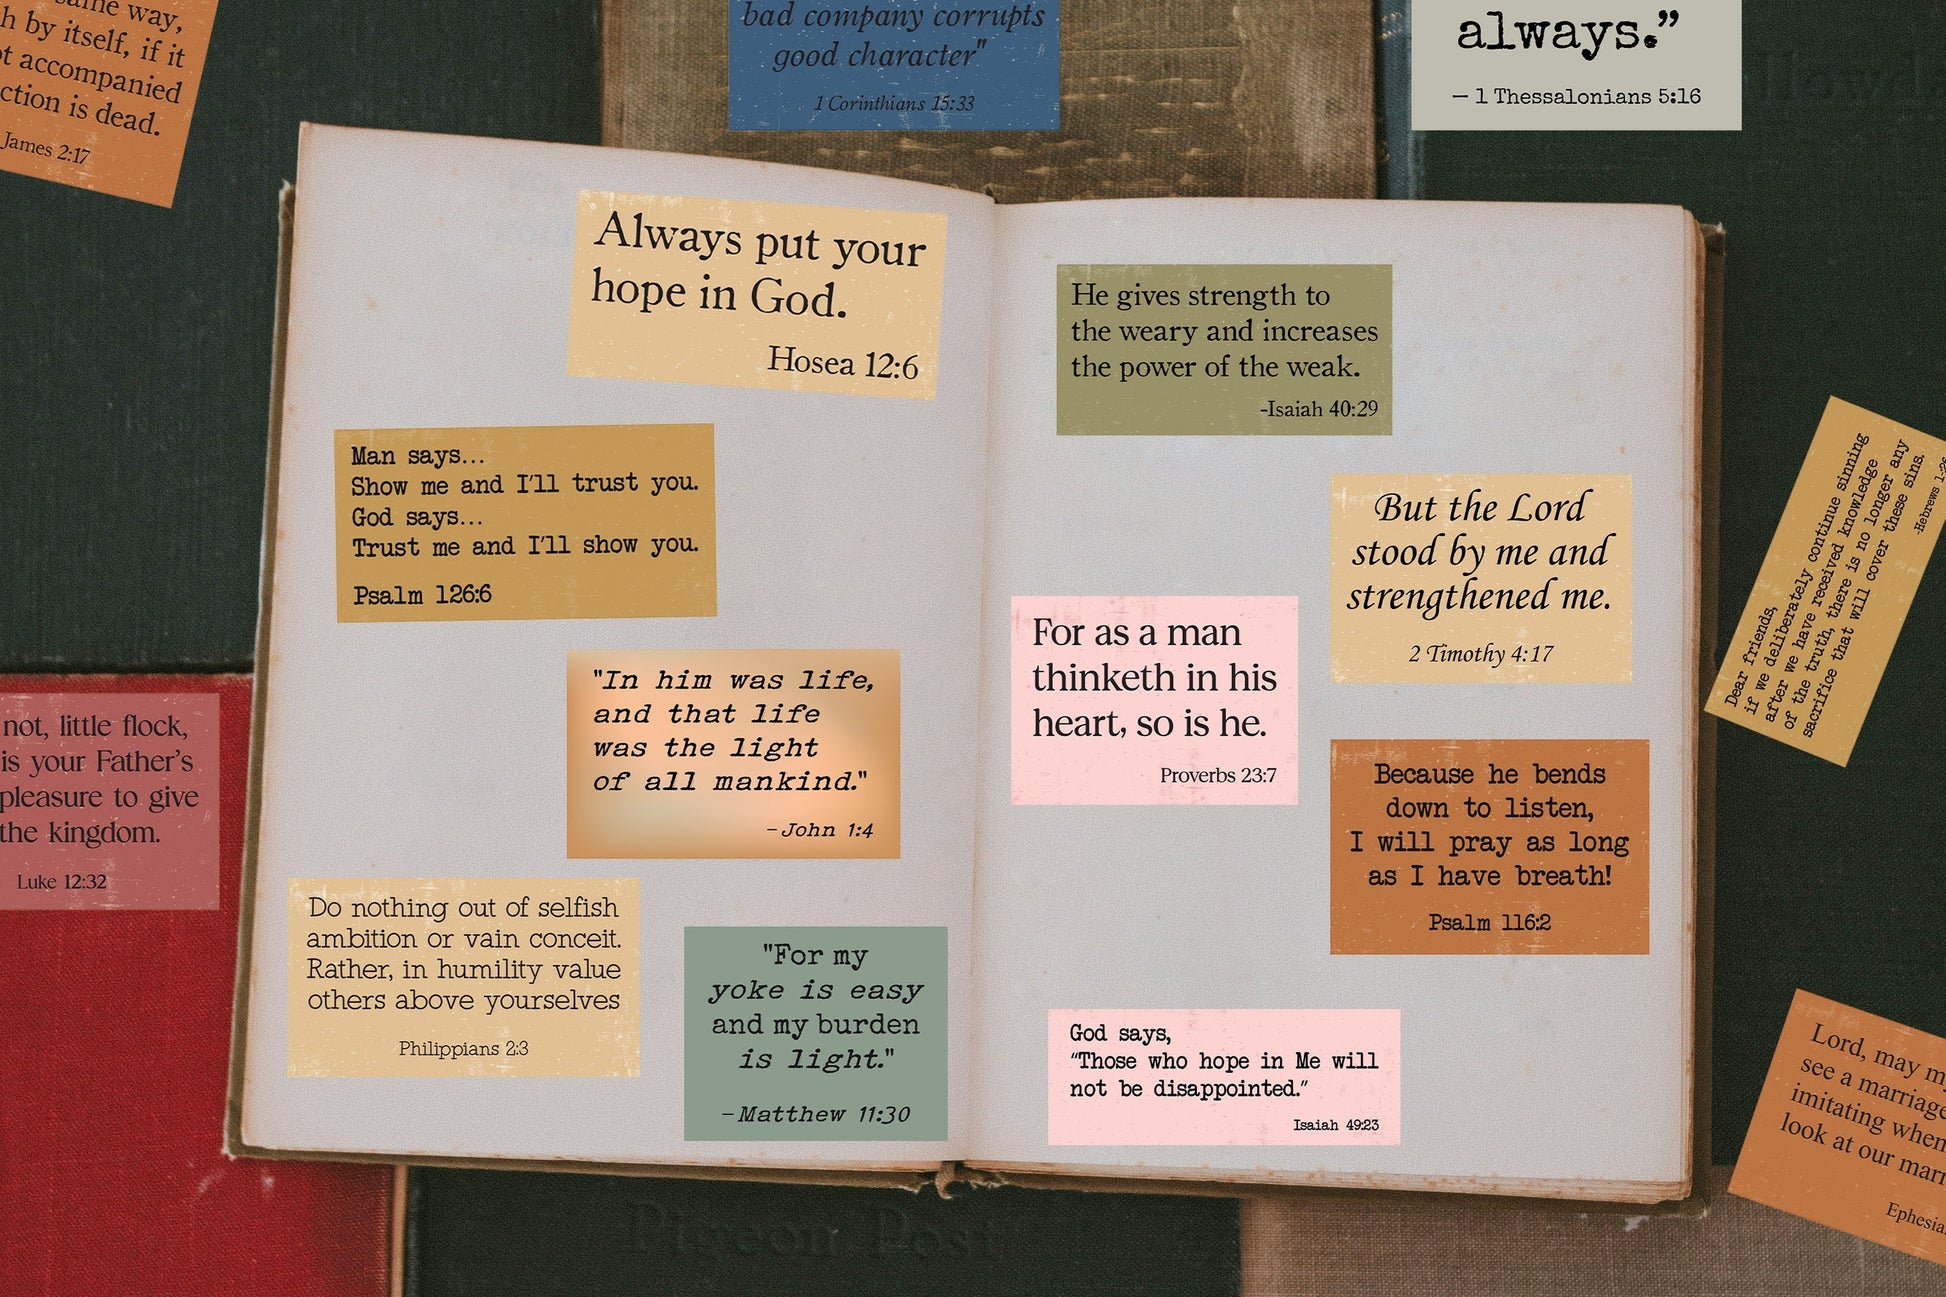 same way,
by itself, if it
accompanied
is dead.
James 2:17
bad company corrupts
good character"
1 Corinthians 15:33
always.”
— 1 Thessalonians 5:16
Always put your
hope in God.
Hosea 12:6
Man says...
Show me and I'll trust you.
God says...
Trust me and I'll show you.
Psalm 126:6
"In him was life,
and that life
was the light
of all mankind."
–John 1:4
not, little flock,
is your Father’s
pleasure to give
the kingdom.
Luke 12:32
Do nothing out of selfish
ambition or vain conceit.
Rather, in humility value
others above yourselves
Philippians 2:3
"For my
yoke is easy
and my burden
is light."
–Matthew 11:30
He gives strength to
the weary and increases
the power of the weak.
-Isaiah 40:29
But the Lord
stood by me and
strengthened me.
2 Timothy 4:17
For as a man
thinketh in his
heart, so is he.
Proverbs 23:7
Because he bends
down to listen,
I will pray as long
as I have breath!
Psalm 116:2
God says,
“Those who hope in Me will
not be disappointed.”
Isaiah 49:23
Dear friends,
if we deliberately continue sinning
after we have received knowledge
of the truth, there is no longer any
sacrifice that will cover these sins.
-Hebrews
Lord, may my
see a marriage
imitating when
look at our
Pigeon Post